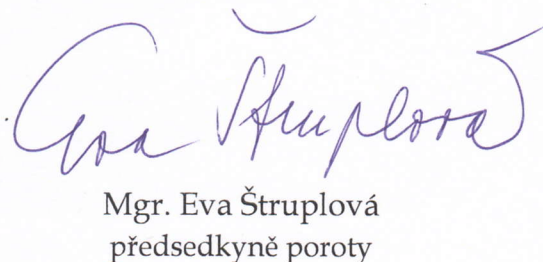 Eva Štruplová
Mgr. Eva Štruplová
předsedkyně poroty